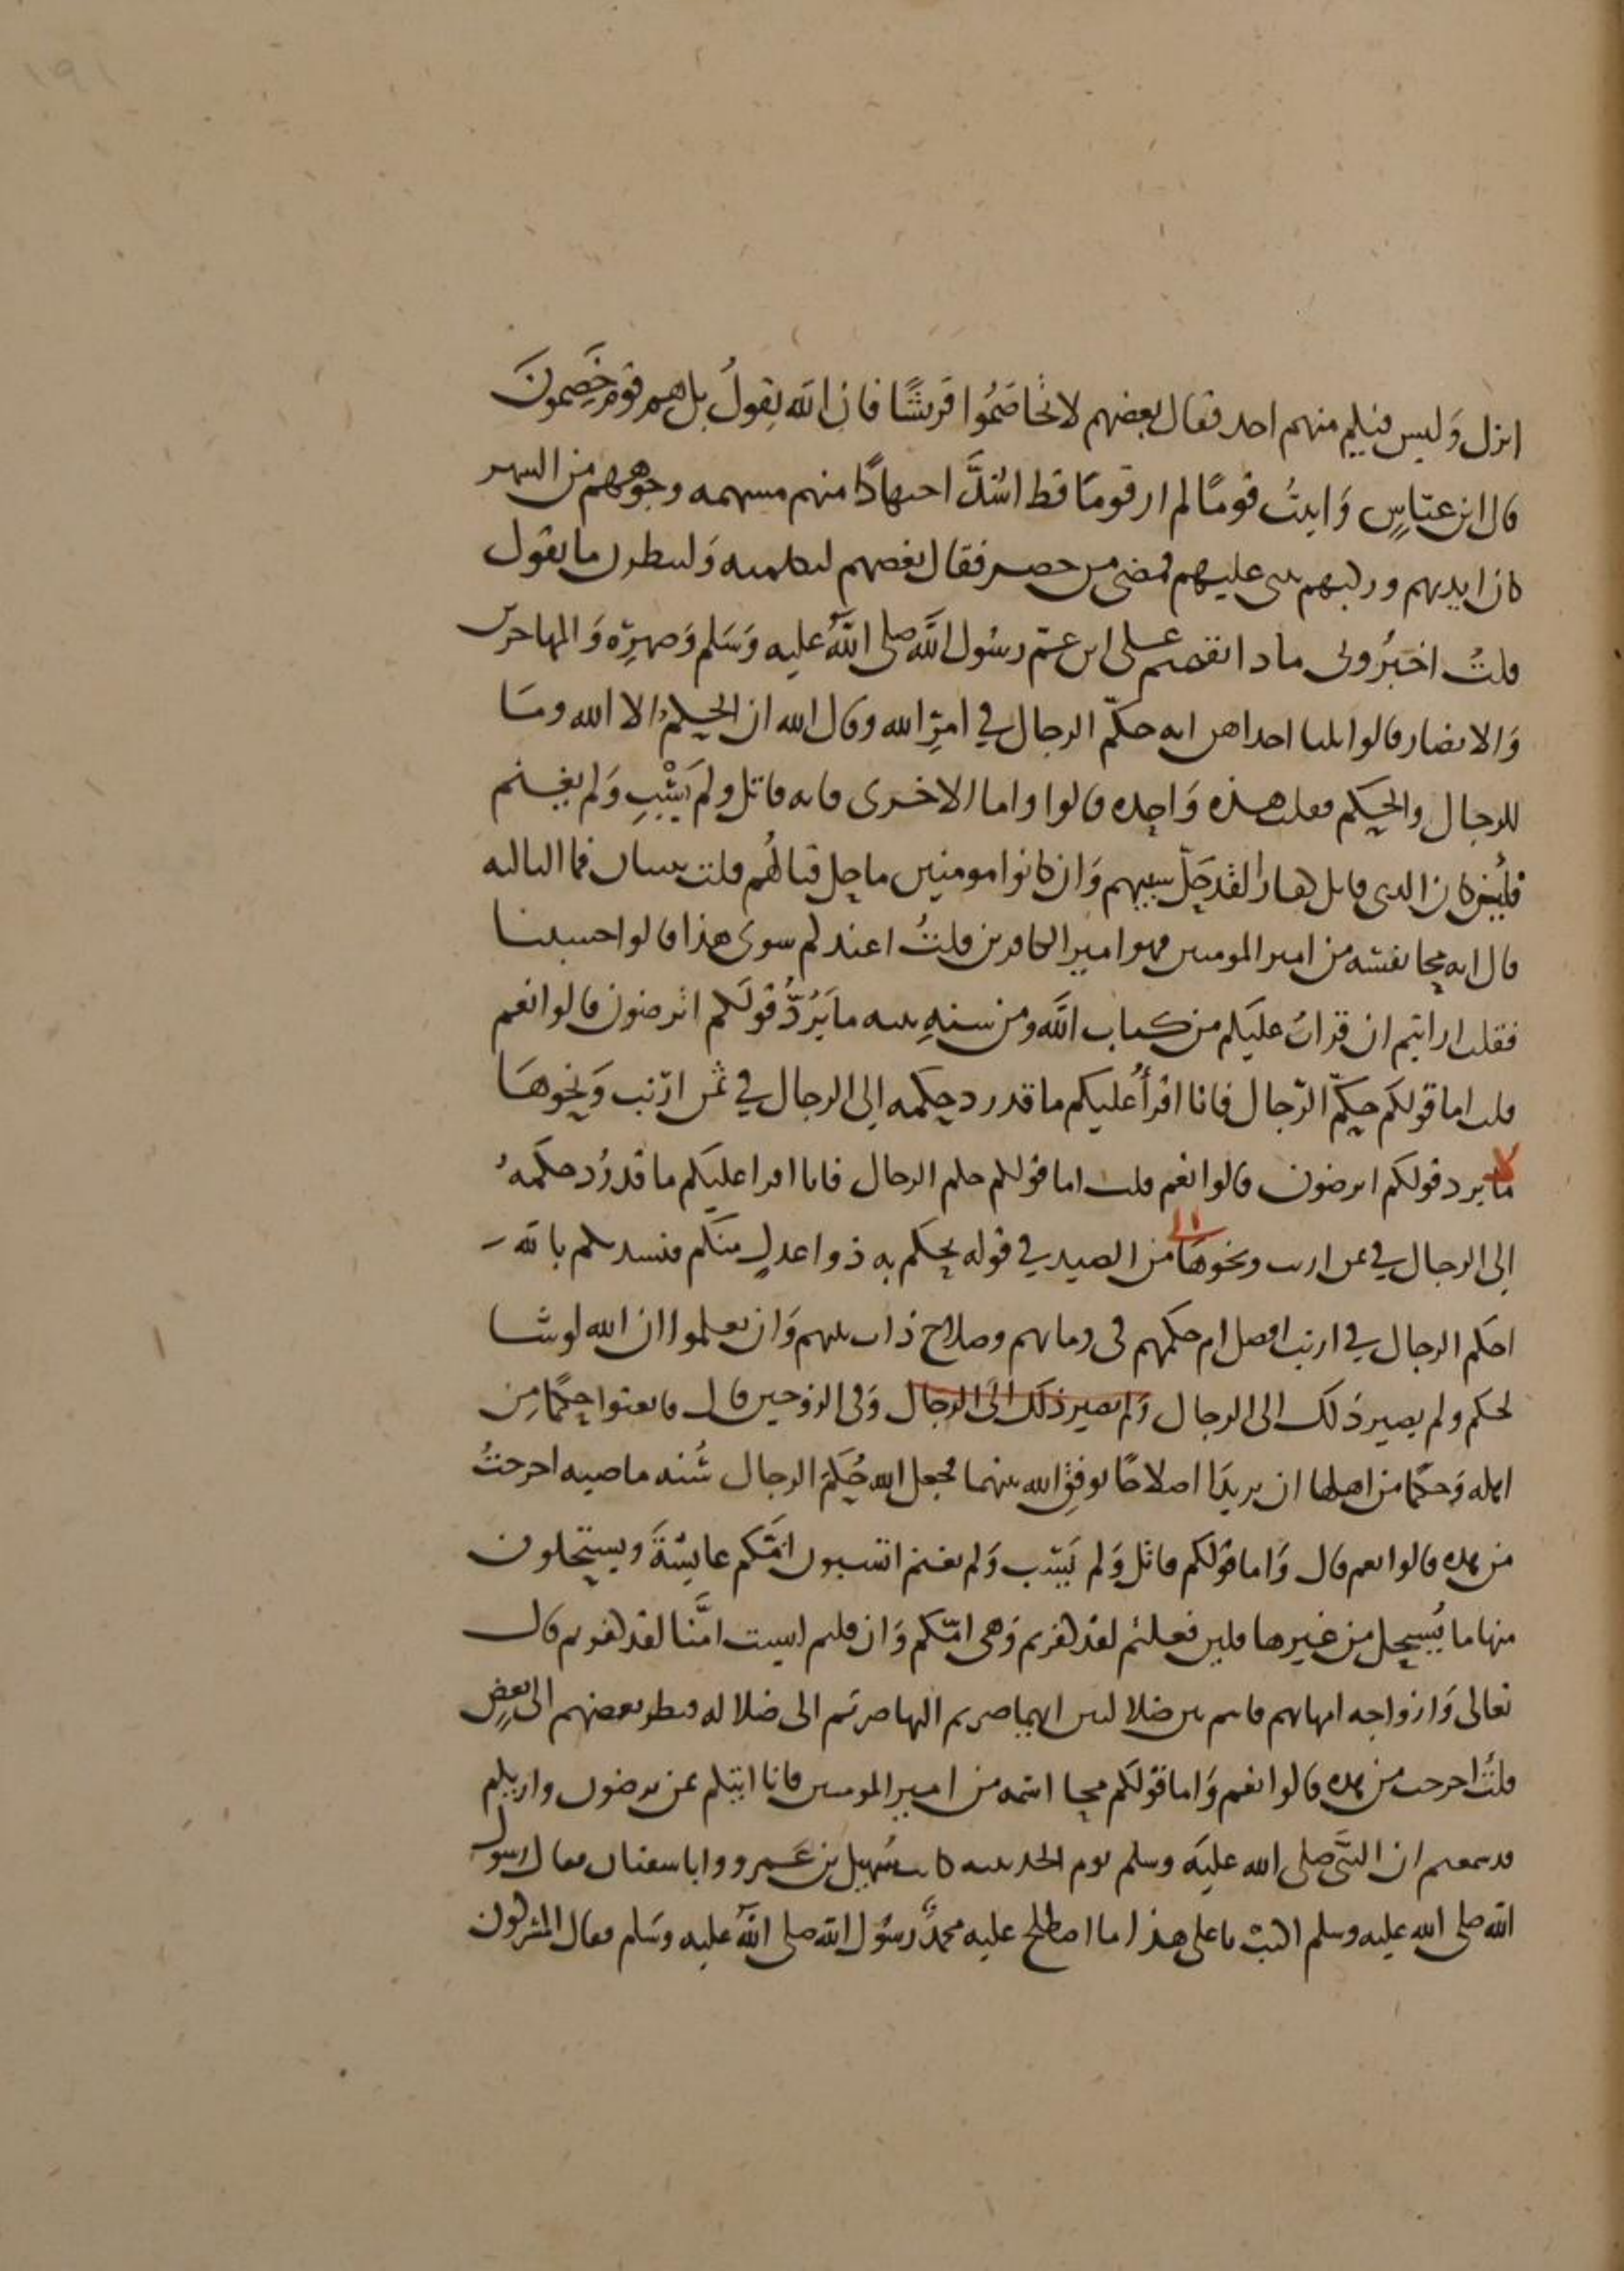 انزل وَليس فيكم منهم احد فقال بعضهم لا تخاصَمُوا قريشًا فان الله يقولُ بل هم قوم خَصِمونَ
قال ابن عبّاسٍ وَاتيتُ قومًا لم ار قومًا قط اشدَّ اجتهادًا منهم مسهمه وجوههم من السهر
كان ايديهم وركبهم تثنى عليهم فمضى من حضر فقال بعضهم لنكلمنه وَلننظرن ما يقول
قلتُ اخبرُونى ماذا نقمتم على ابن عمّ رسُول الله صلى اللهُ عليه وَسَلم وَصهرِه وَالمهاجرين
وَالانصار قالوا ثلثا احداهن انه حكّم الرجال في امرِ الله وقال الله ان الحكمُ الا الله ومَا
للرجال والحكم فقلت هذه وَاحِده قالوا واما الاخرى فانه قاتل ولم يَسْبِ وَلم يغنم
فلَئن كان الذى قاتل كفارا لقد حَلّ سبيهم وَان كانوا مومنين ما حل قتالهُم قلت ثنتان فما الثالثه
قال انه محا نفسَه من امير المومنين فهو امير الكافرين قلتُ اعندكم سوى هذا قالوا حسبنا
فقلت ارايتم ان قراتُ عليكم من كتاب الله ومن سنهِ نبيه ما يَرُدُّ قولَكم اترضون قالوا نعم
قلت اما قولكم حكّم الرّجال فانا اقرأُ عليكم ما قد رد حكمه الى الرجال في ثمن ارنب وَنحوهَا
ما يرد قولكم اترضون قالوا نعم قلت اما قولكم حكم الرجال فانا اقرا عليكم ما قد رُد حكمهُ
الى الرجال في ثمن ارنب ونحوهَا من الصيد في قوله يحكم به ذوا عدلٍ منكم فنشدتكم بالله
احكم الرجال في ارنب افضل ام حكمهم فى دمايهم وصلاح ذات بينهم وَان تعلموا ان الله لو شا
لحكم ولم يصير ذلك الى الرجال وَلم يصير ذلك الى الرجال وَفى الزوجين قال فابعثوا حكمًا مِن
اهله وَحكمًا من اهلها ان يريدَا اصلاحًا يوفقِ الله بينهما فجعل الله حُكمَ الرجال سُنه ماضيه اخرجتُ
من هذه قالوا نعم قال وَاما قولكم قاتل وَلم يَسْب وَلم يغنم اتسبون امّكم عايشةَ ويستحلون
منها ما يُستحل من غيرها فلين فعلتم لقد كفرتم وَهى امّكم وَان قلتم ليست امَّنا لقد كفرتم قال
تعالى وَازواجه امهاتهم فانتم بين ضلالتين ايهما صرتم اليها صرتم الى ضلاله فنظر بعضهم الى بعضٍ
قلتُ اخرجت من هذه قالوا نعم وَاما قولكم محا اسمه من امير المومنين فانا اتيكم بمن ترضون واريكم
قد سمعتم ان النبَّى صلى الله عليَه وسلم يوم الحديبيه كاتب سُهيل بن عَمرو وابا سفيان فقال رسول
الله صلى الله عليه وسلم اكتب يا على هذا ما اصطلح عليه محمدٌ رسُول الله صلى اللهُ عليه وسَلم فقال المشركون